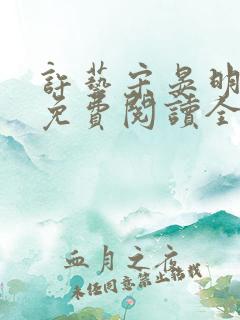 許藝宗晏明
免費閱讀全
血月之夜
未经同意禁止转载